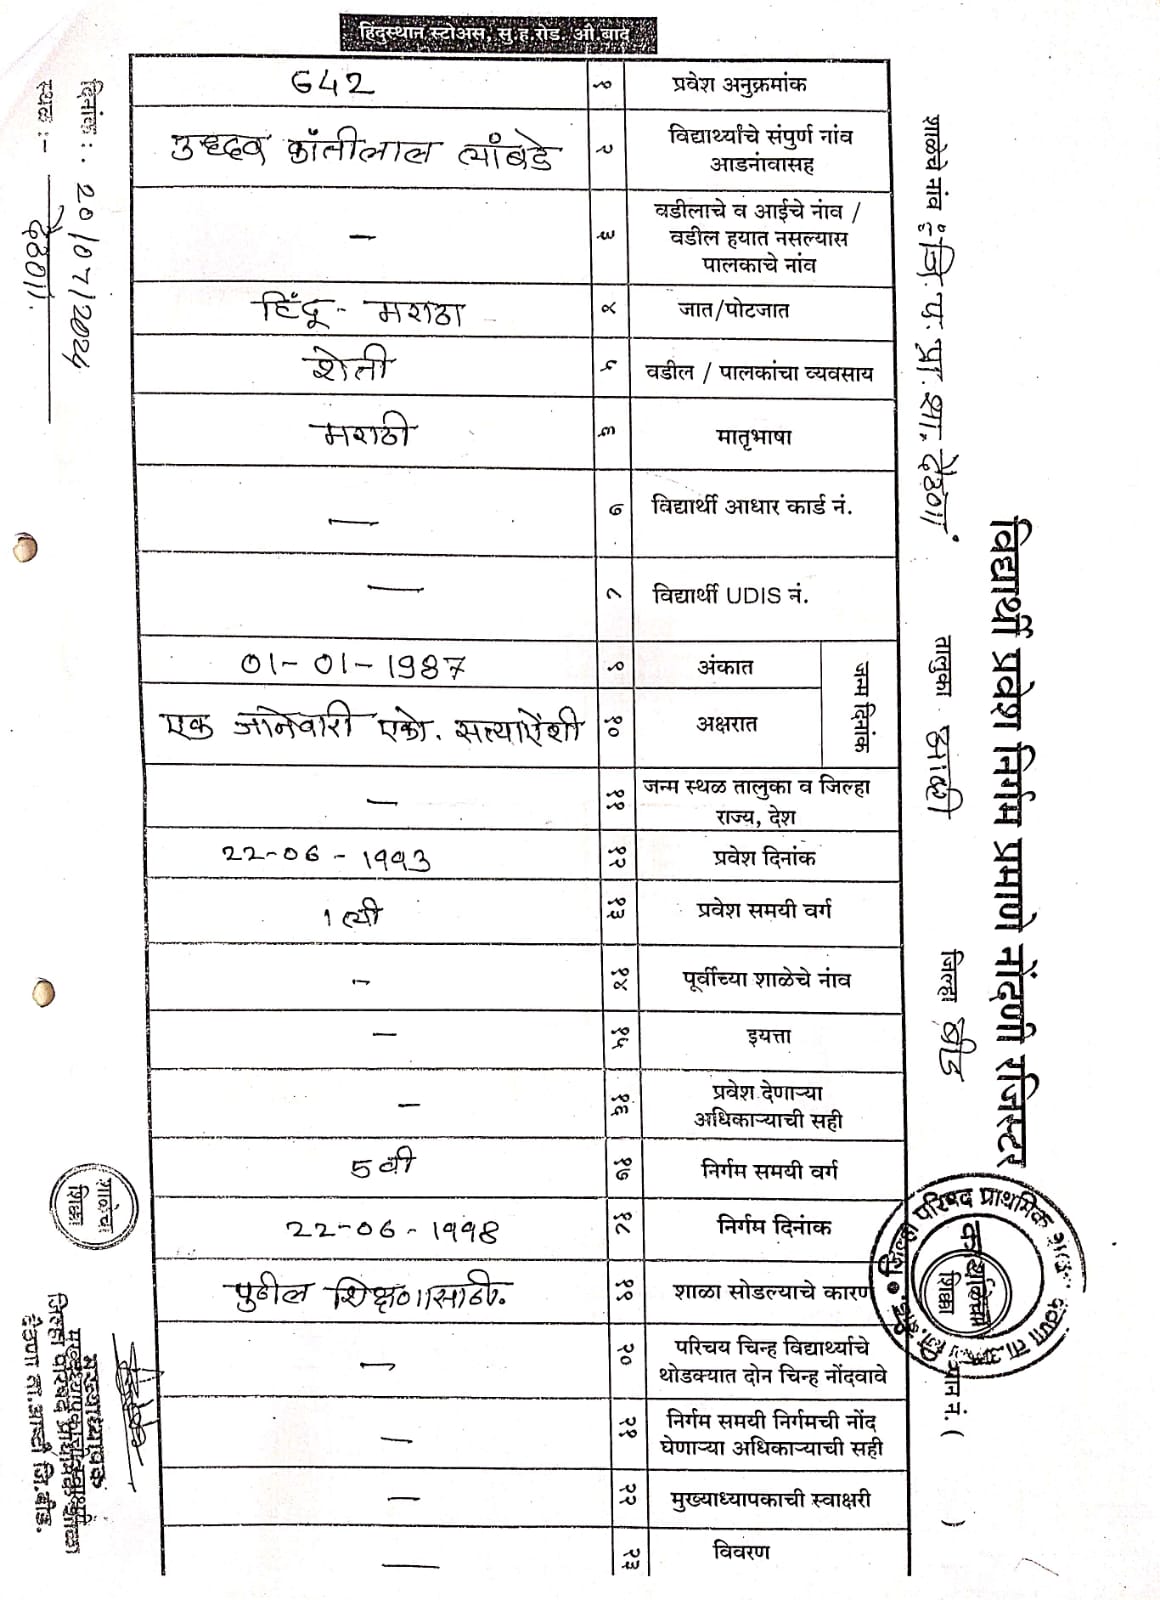 हिंदुस्थान स्टोअर्स, सु.ह.रोड. औ.बाद
विद्यार्थी प्रवेश निर्गम प्रमाणे नोंदणी रजिस्टर
शाळेचे नांव :- जि. प. प्रा. शा. देऊळगां
तालुका आष्टी
जिल्हा बीड
१ प्रवेश अनुक्रमांक 642
२ विद्यार्थ्यांचे संपुर्ण नांव
आडनांवासह उध्दव कांतीलाल त्यांबडे
३ वडीलाचे व आईचे नांव /
वडील हयात नसल्यास
पालकाचे नांव —
४ जात/पोटजात हिंदू - मराठा
५ वडील / पालकांचा व्यवसाय शेती
६ मातृभाषा मराठी
७ विद्यार्थी आधार कार्ड नं. —
८ विद्यार्थी UDIS नं. —
जन्म दिनांक
९ अंकात 01-01-1987
१० अक्षरात एक जानेवारी एको. सत्याऐंशी
११ जन्म स्थळ तालुका व जिल्हा
राज्य, देश —
१२ प्रवेश दिनांक 22-06-1993
१३ प्रवेश समयी वर्ग 1 ली
१४ पूर्वीच्या शाळेचे नांव —
१५ इयत्ता —
१६ प्रवेश देणाऱ्या
अधिकाऱ्याची सही —
१७ निर्गम समयी वर्ग 5 वी
१८ निर्गम दिनांक 22-06-1998
१९ शाळा सोडल्याचे कारण पुढील शिक्षणासाठी.
२० परिचय चिन्ह विद्यार्थ्यांचे
थोडक्यात दोन चिन्ह नोंदवावे —
२१ निर्गम समयी निर्गमची नोंद
घेणाऱ्या अधिकाऱ्याची सही —
२२ मुख्याध्यापकाची स्वाक्षरी —
२३ विवरण —
दिनांक :. 20/07/2024
स्थळ :-
शाळेचा
शिक्का
जिल्हा परिषद प्राथमिक
कार्यालयाचा
शिक्का
मुख्याध्यापक
जिल्हा परिषद प्राथमिक शाळा
ता.आष्टी जि.बीड.